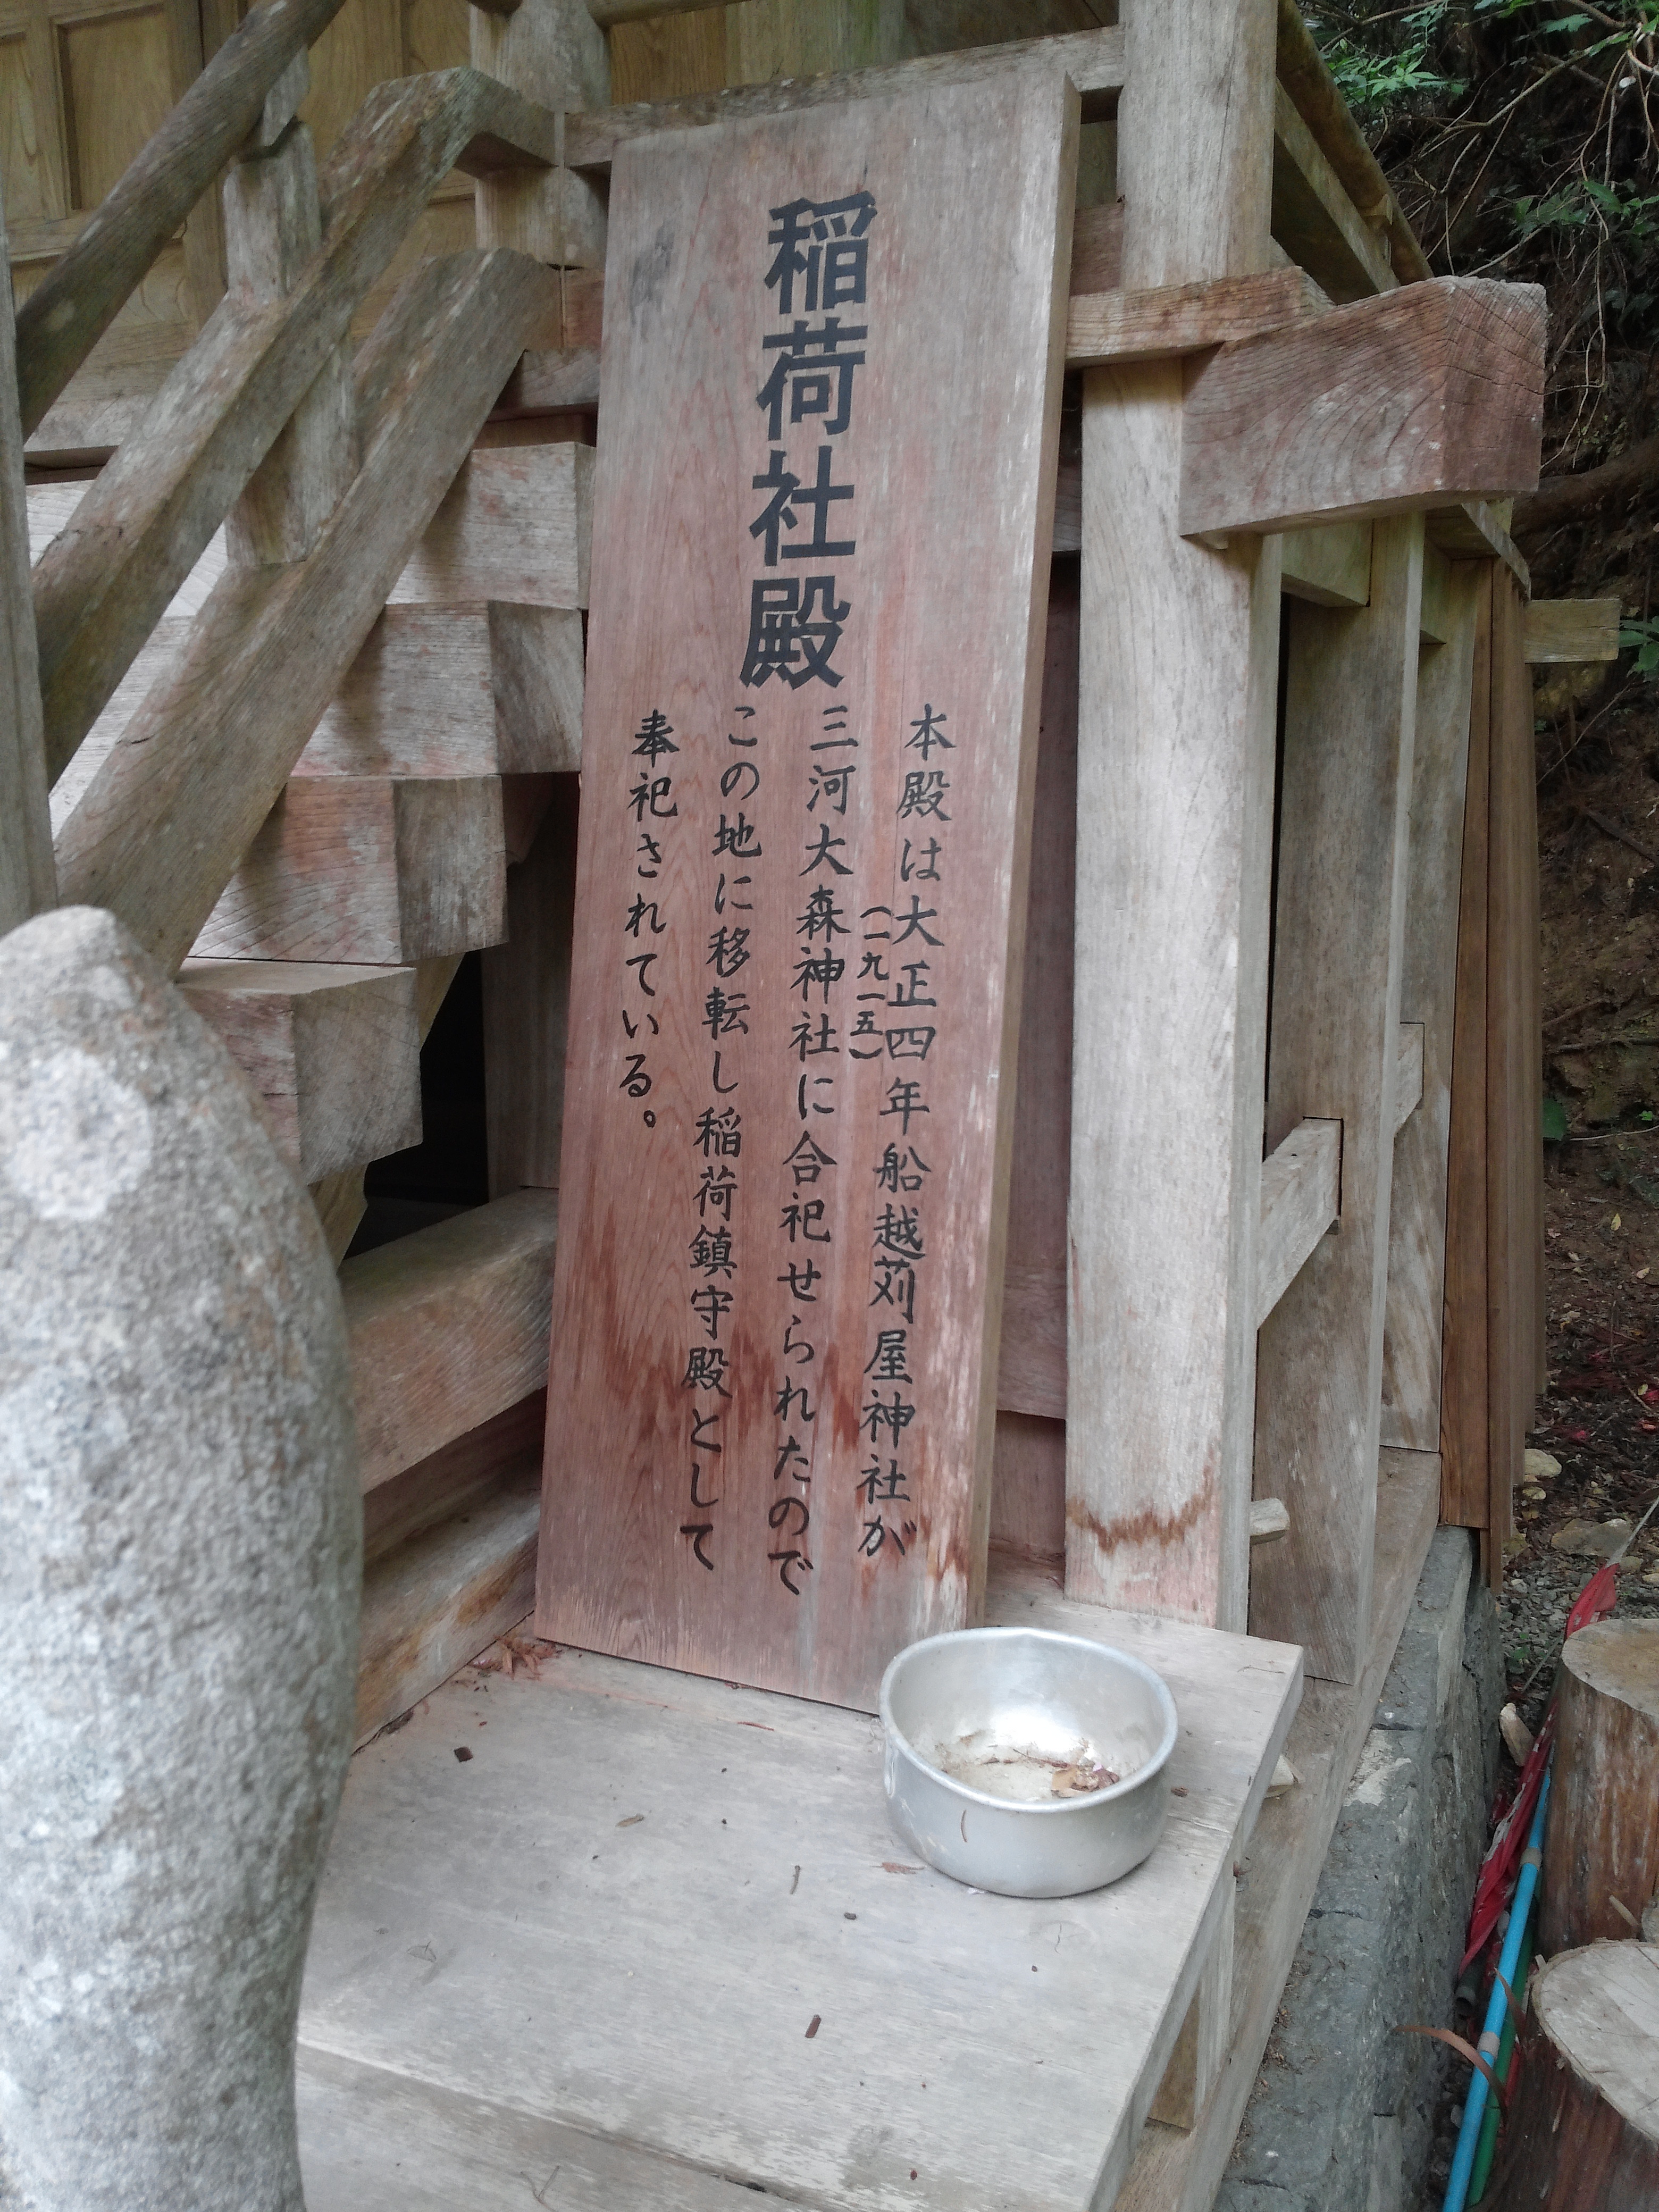 稲荷社殿
本殿は大正四年船越苅屋神社が
(一九一五)
三河大森神社に合祀せられたので
この地に移転し稲荷鎮守殿として
奉祀されている。